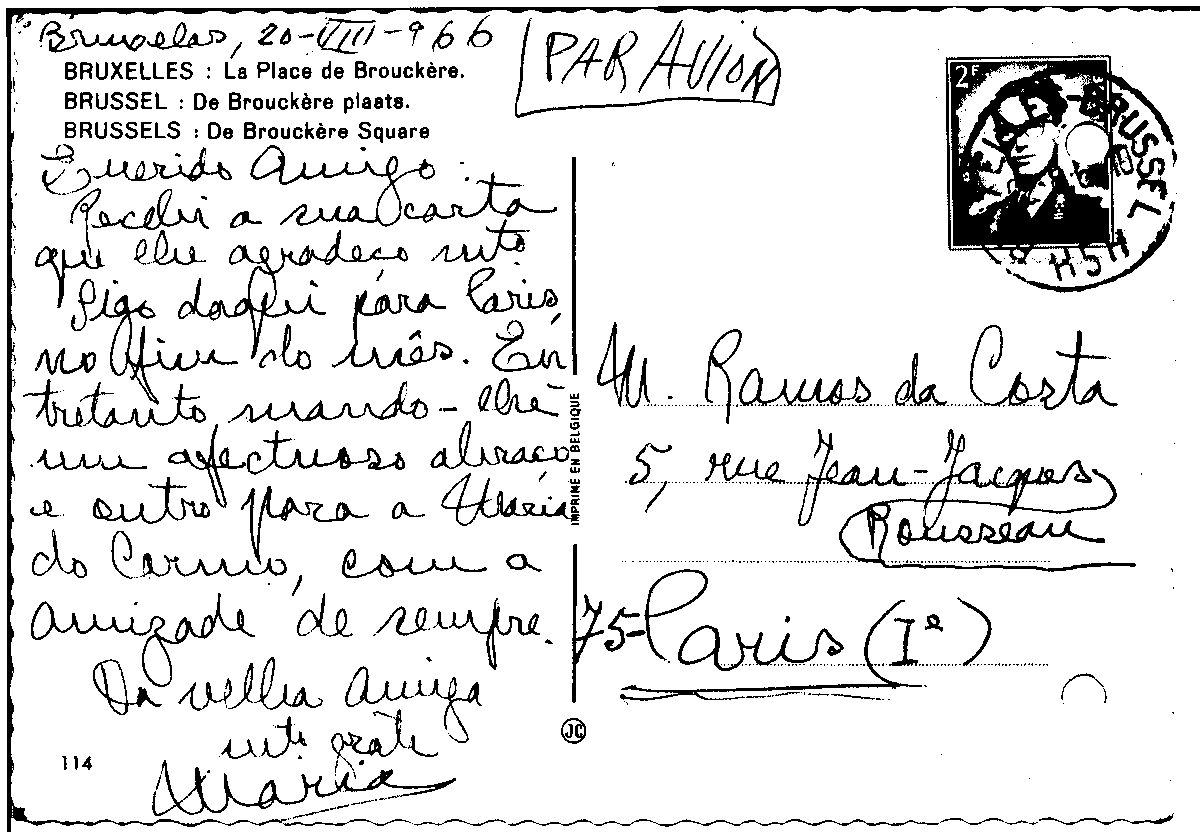 Bruxelas, 20-VIII-966
BRUXELLES : La Place de Brouckère.
BRUSSEL : De Brouckère plaats.
BRUSSELS : De Brouckère Square
Querido Amigo:
Recebi a sua carta
que lhe agradeço mtº
Sigo daqui para Paris,
no fim do mês. En
tretanto mando-lhe
um afectuoso abraço
e outro para a Maria
do Carmo, com a
amizade de sempre.
Da velha amiga
mtº grata
Maria
114
IMPRIME EN BELGIQUE
JC
PAR AVION
2F
BRUSSEL
M. Ramos da Costa
5, rue Jean-Jacques
Rousseau
75-Paris (Ie)